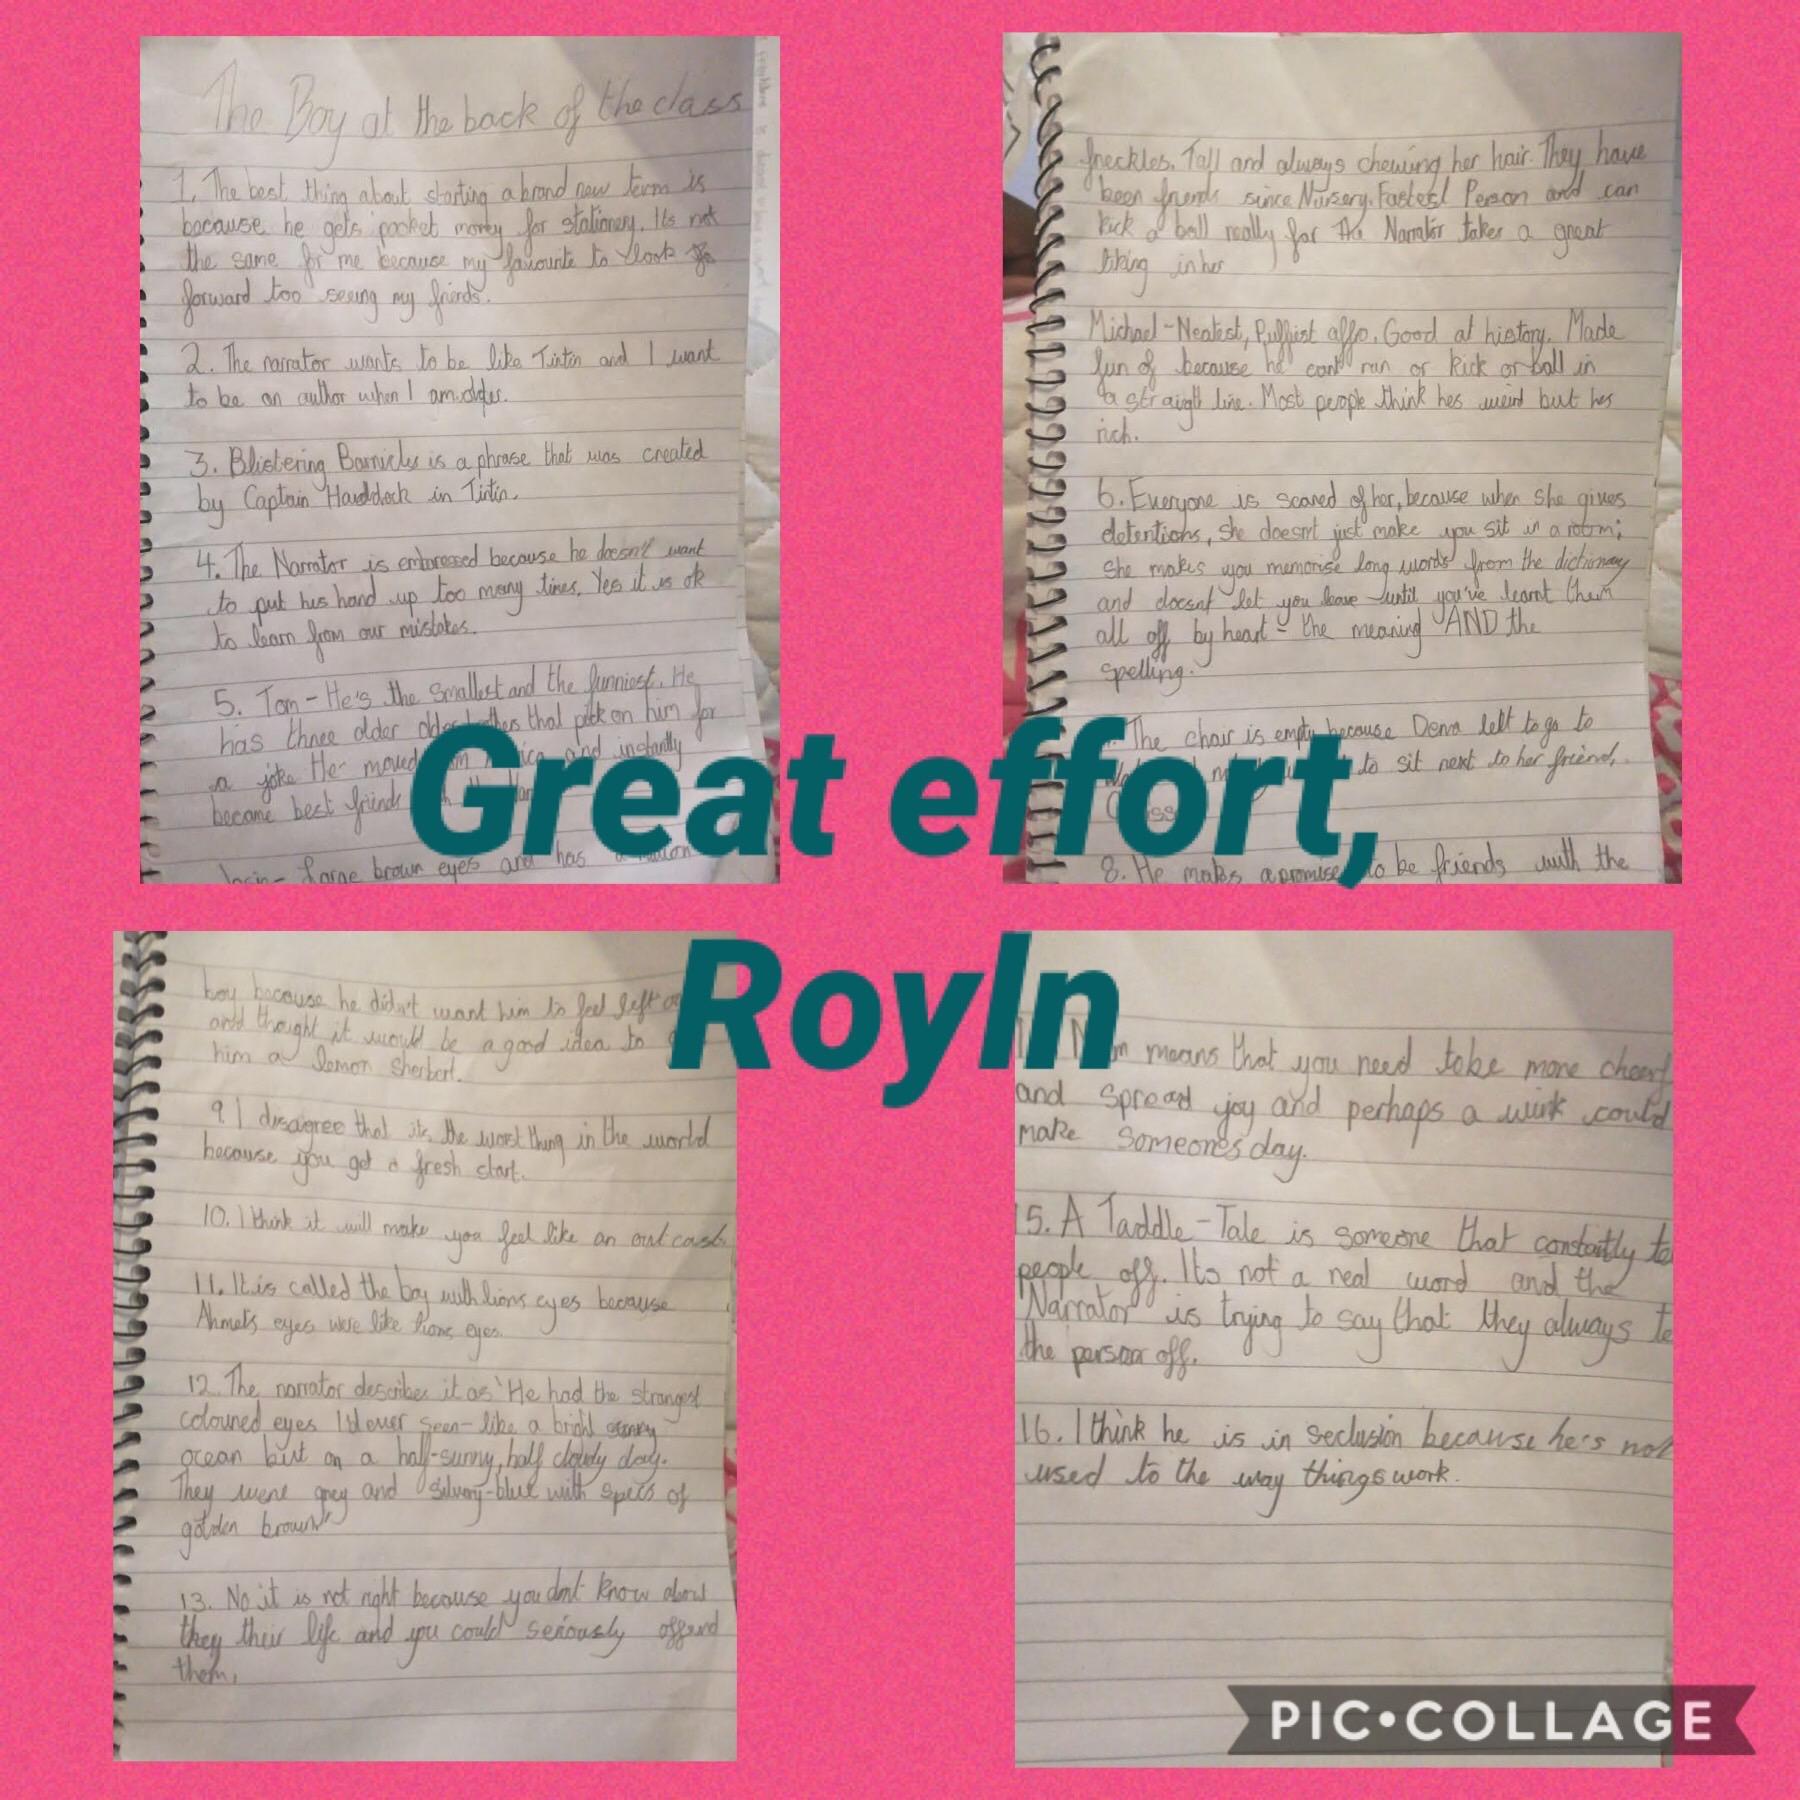 The Boy at the back of the class
1. The best thing about starting a brand new term is
because he gets pocket money for stationery. Its not
the same for me because my favourite to look
forward too seeing my friends.
2. The narrator wants to be like Tintin and I want
to be an author when I am older.
3. Blistering Barnicles is a phrase that was created
by Captain Haddock in Tintin.
4. The Narrator is embaressed because he doesn't want
to put his hand up too many times. Yes it is ok
to learn from our mistakes.
5. Tom - He's the smallest and the funniest. He
has three older brothers that pick on him for
a joke He moved and instantly
became best friends
Large brown eyes and has a
freckles. Tall and always chewing her hair. They have
been friends since Nursery. Fastest Person and can
kick a ball really far The Narrator takes a great
liking in her
Michael - Neatest, Puffiest affro. Good at history. Made
fun of because he cant run or kick or ball in
a straigth line. Most people think hes weird but hes
rich.
6. Everyone is scared of her, because when she gives
detentions, she doesn't just make you sit in a room;
she makes you memorise long words from the dictionary
and doesnt let you leave until you've learnt them
all off by heart - the meaning AND the
spelling.
The chair is empty because Dena left to go to
to sit next to her friend,
8. He makes a promise to be friends with the
Great effort,
Royln
boy because he didn't want him to feel left
and thought it would be a good idea to
him a lemon Sherbert.
9. I disagree that its the worst thing in the world
because you get a fresh start.
10. I think it will make you feel like an out cast.
11. It is called the boy with lions eyes because
Ahmets eyes were like lions eyes.
12. The narrator describes it as 'He had the strangest
coloured eyes I'd ever seen - like a bright
ocean but on a half-sunny, half cloudy day.
They were grey and silvery-blue with specs of
golden brown"
13. No it is not right because you dont know about
they their life and you could seriously offend
them.
means that you need to be more
and spread joy and perhaps a wink could
make someones day.
15. A Taddle-Tale is someone that constantly
people off. Its not a real word and the
Narrator is trying to say that they always
the person off.
16. I think he is in seclusion because he's not
used to the way things work.
PIC•COLLAGE